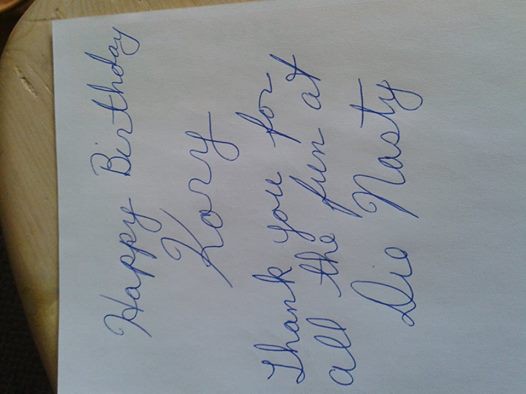 Happy Birthday
Kory
Thank you for
all the fun at
Die Nasty